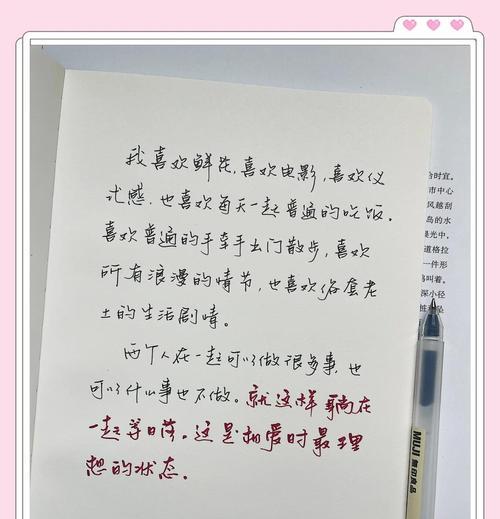 我喜欢鲜花,喜欢电影,喜欢仪
式感,也喜欢每天一起普通的吃饭。
喜欢普通的手牵手出门散步,喜欢
所有浪漫的情节,也喜欢俗套老
土的生活剧情。
两个人在一起可以做很多事,也
可以什么事也不做。就这样躺在
一起等日落。这是相爱时最理
想的状态。
合时宜。
市中心
风越刮
岛的水
曝光中。
道格拉
一件形
鸟叫着。
深小径
MUJI 無印良品